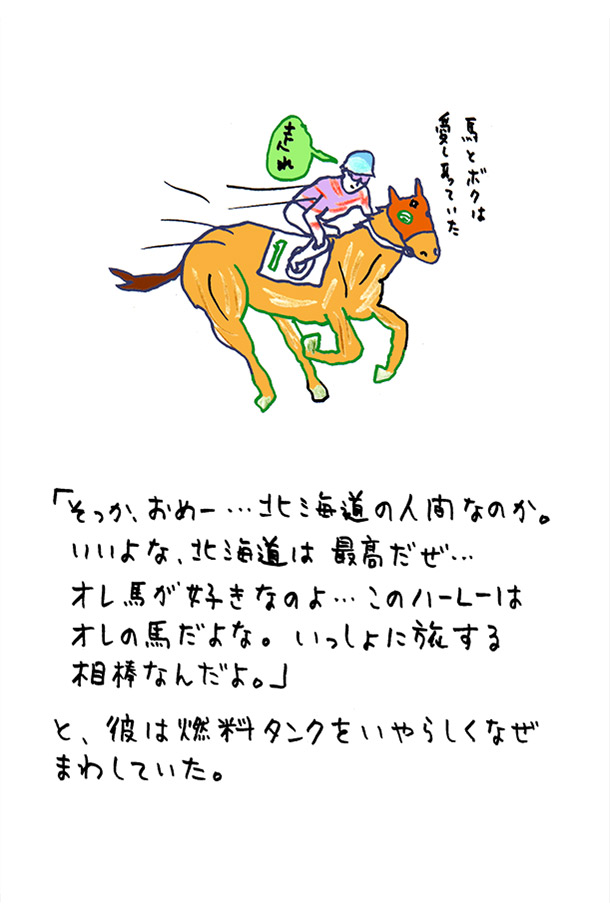 馬とボクは
愛しあっていた
走れ
1
「そっか、おめー…北海道の人間なのか。
いいよな、北海道は最高だぜ…
オレ馬が好きなのよ…このハーレーは
オレの馬だよな。いっしょに旅する
相棒なんだよ。」
と、彼は燃料タンクをいやらしくなぜ
まわしていた。